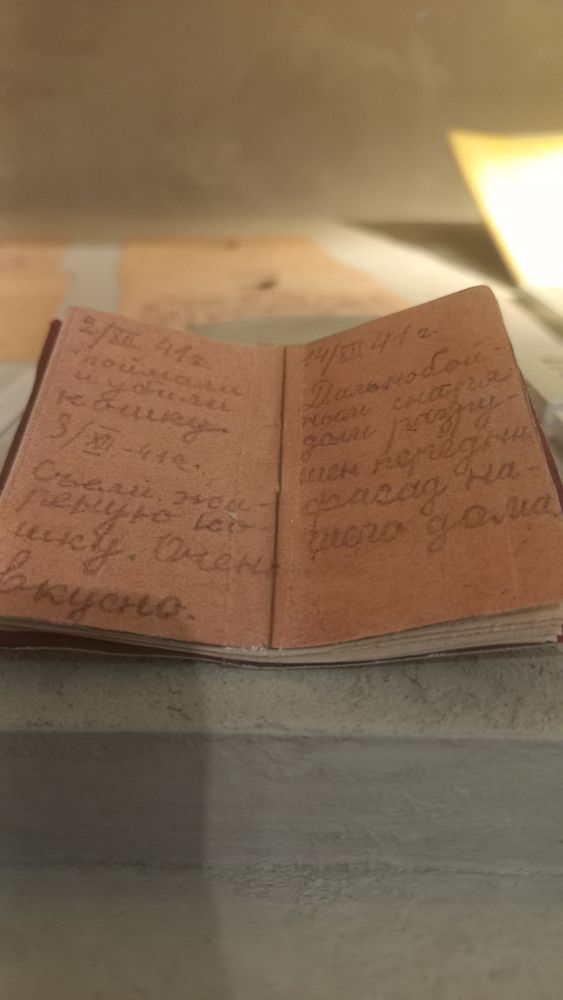 2/XII 41 г.
поймали
и убили
кошку.
3/XII-41 г.
Съели жа-
реную ко-
шку. Очень
вкусно.
14/XII 41 г.
Дальнобой-
ным снаря
дом разру-
шен передний
фасад на-
шего дома